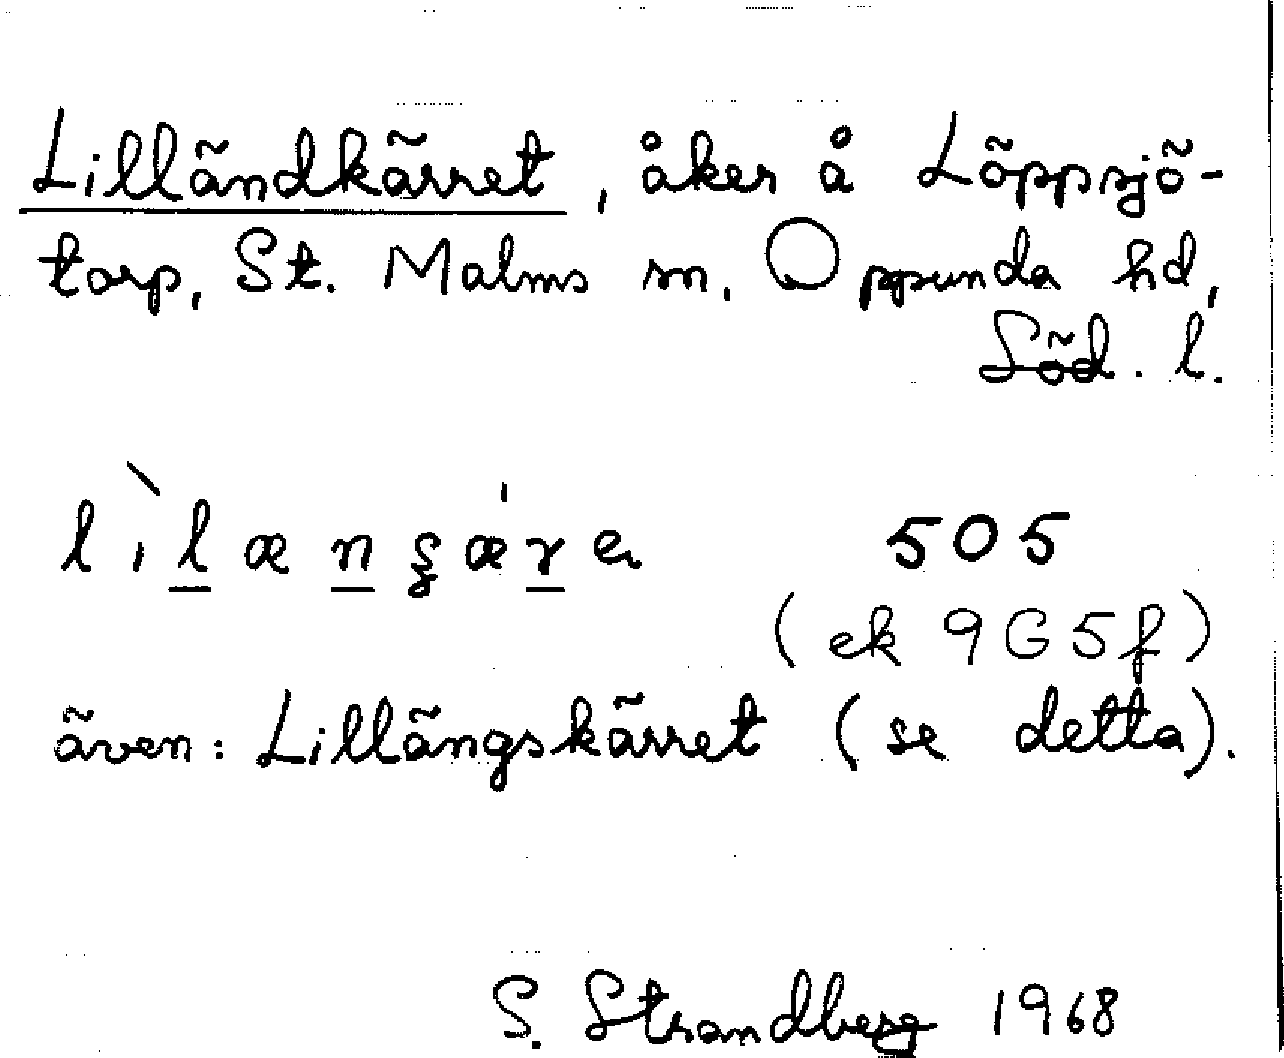 Lilländkärret, åker å Löppsjö-
torp, St. Malms sn, Oppunda hd,
Söd. l.
505
(ek 9G5f)
även: Lillängskärret (se detta).
S. Strandberg 1968